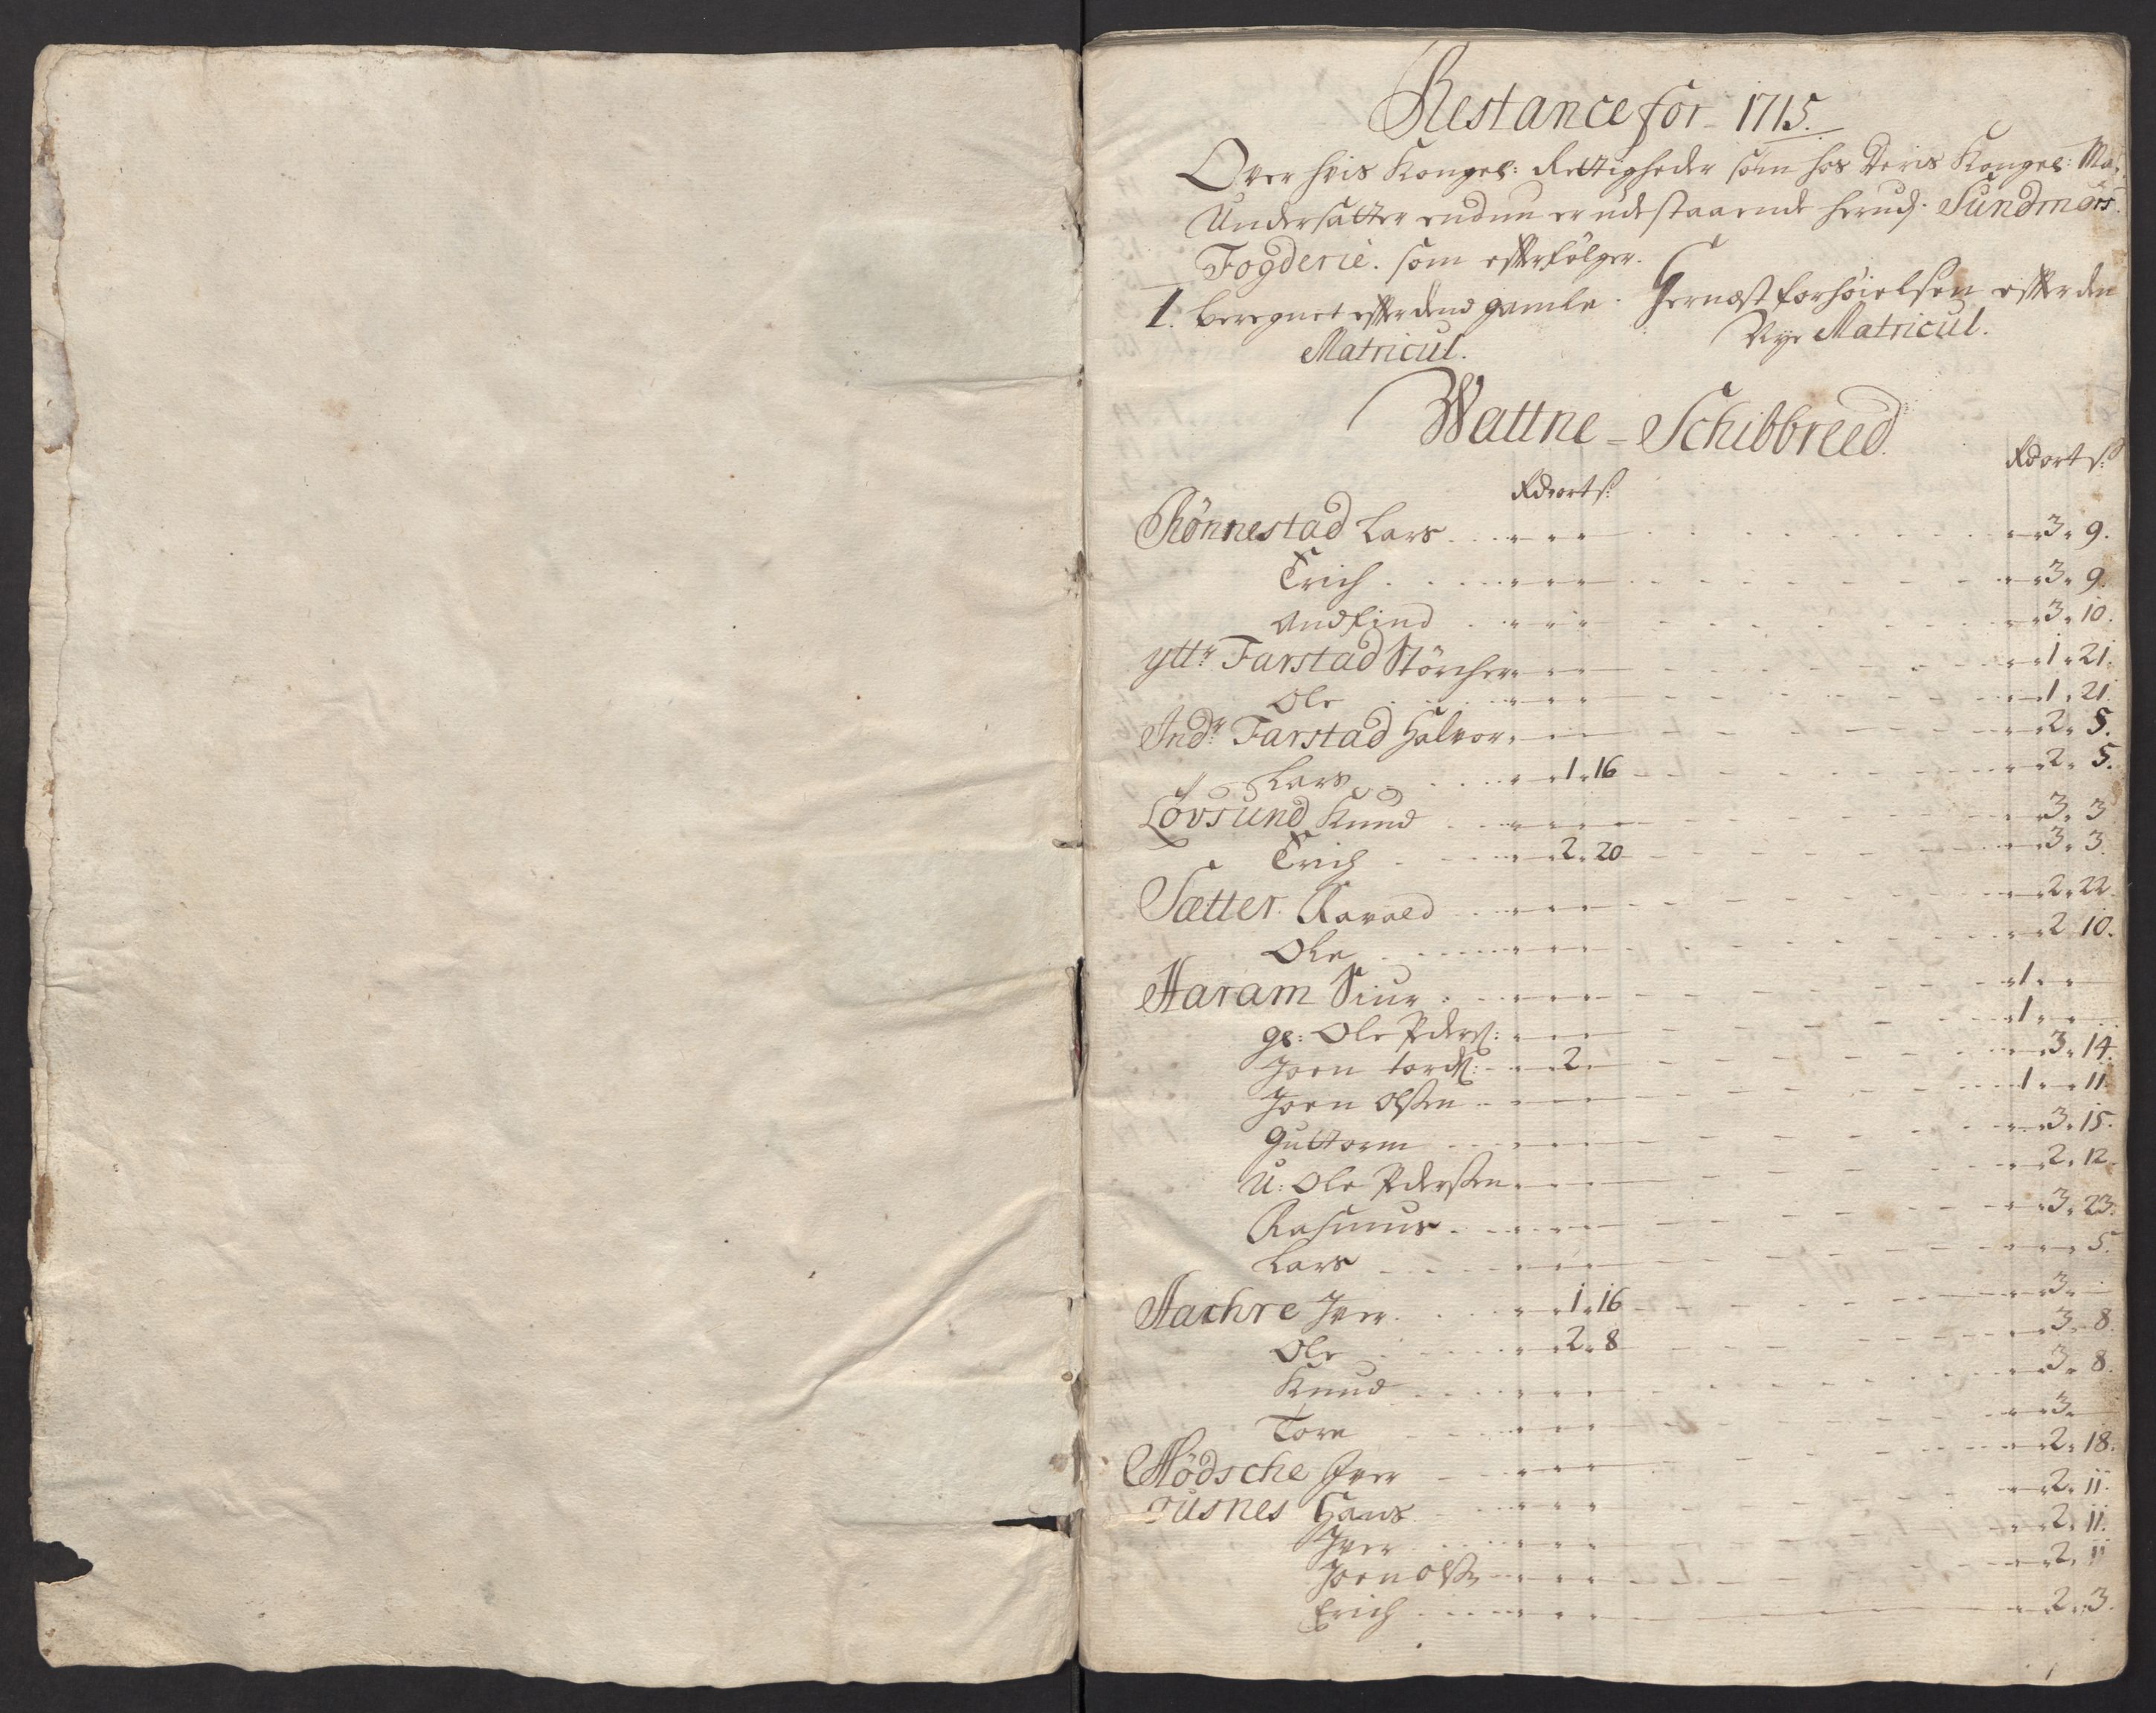 Restance for 1715.
Over hvis Kongel: Rettigheder som hos Deris Kongel: Ma:
Undersatter endnu er udestaaende herudj Sundmörs
Fogderie. som efterfölger.
1. beregnet efter dend gamle Matricul. Hernæst forhöielsen efter den Nye Matricul.
Wattne - Schibbreed.
Rd ort s: Rd ort s:
Rönnestad Lars 3 " 9.
Erich 3 " 9.
Andfind 3 " 10.
ytt.r Farstad Störcher 1 " 21.
Ole 1 " 21.
Ind.r Farstad Halvor 2 " 5.
Lars 1 " 16 2 " 5.
Lövsund Knud 3 " 3
Erich 2 " 20 3 " 3.
Sætter. Ravald 2 " 22.
Ole 2 10.
Haram Siur 1 " "
gl: Ole Peders: 1 " "
Joen tords: 2 " 3 " 14.
Joen Olsen 1 " " 11.
Guttorm 3 " 15.
U: Ole Pedersen 2 " 12.
Rasmus 3 " 23.
Lars 5.
Aachre Iver 1 " 16 3 "
Ole 2 " 8 3 " 8.
Knud 3 " 8.
Tore 3 "
Mödsche Iver 2 " 18.
Fusnes Hans 2 " 11.
Iver 2 " 11.
Joen Ols: 2 " 11
Erich 2 " 3.